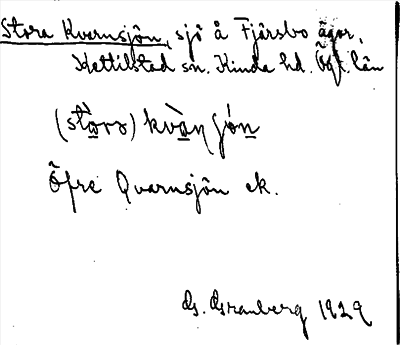 Stora Kvarnsjön, sjö å Fjärsbo ägor,
Kettilstad sn. Kinda hd. Ögl. län
(stòra) kvàn jón
Öfre Qvarnsjön ek.
G. Granberg 1929